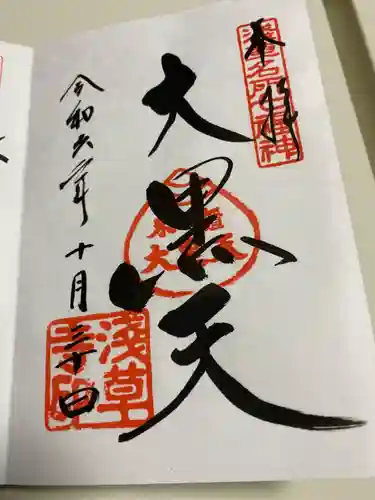 奉拝
浅草名所七福神
大黒天
令和六年十月三十日
浅草寺印